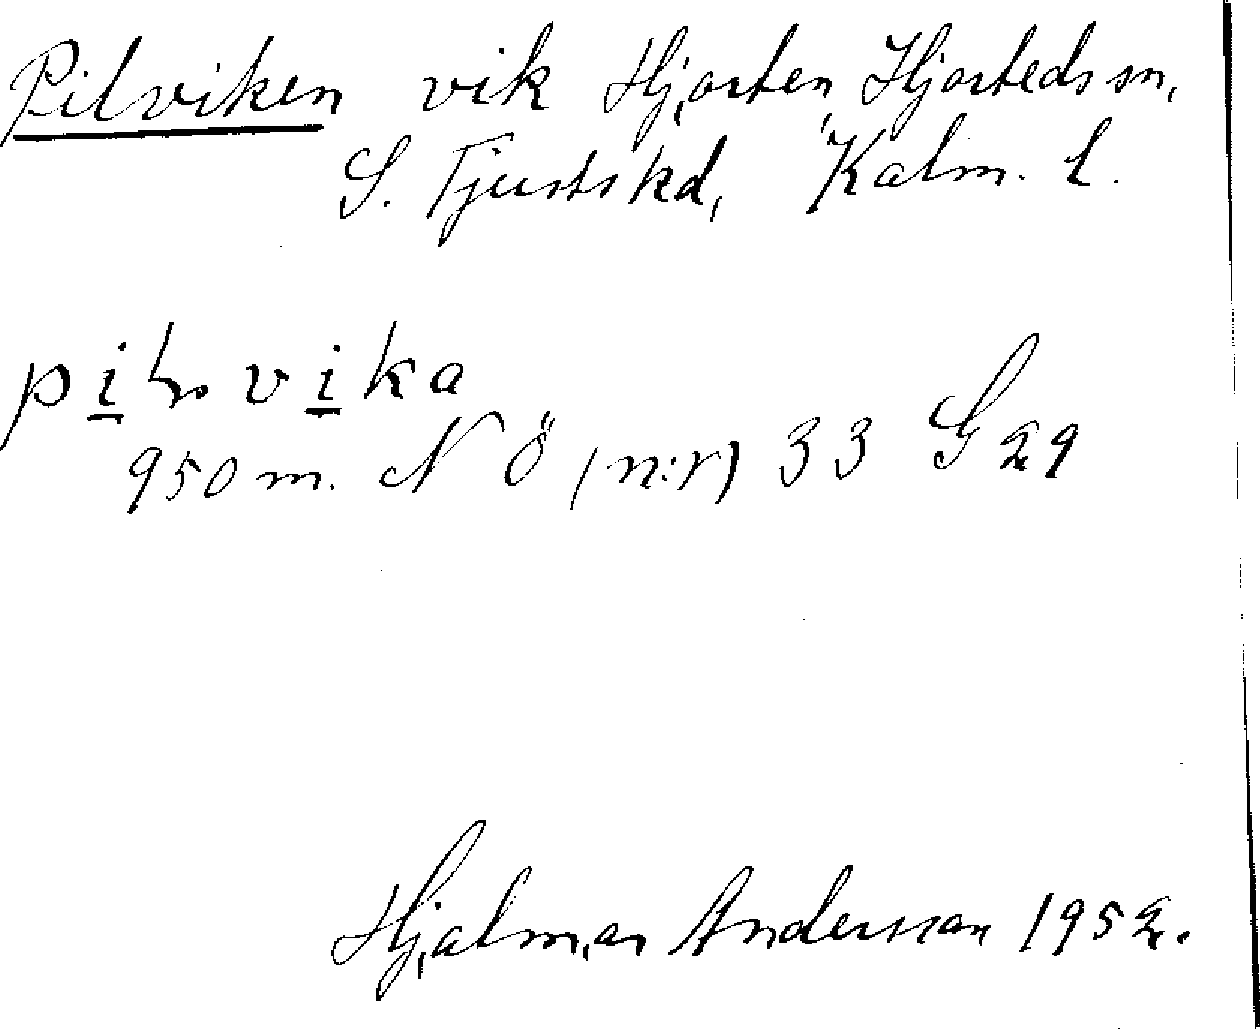 Pilviken vik Hjorten, Hjorteds sn,
S. Tjusts hd, Kalm. L.
pilvika
950 m. N Ö (n:r) 33 G 29
Hjalmar Andersson 1952.